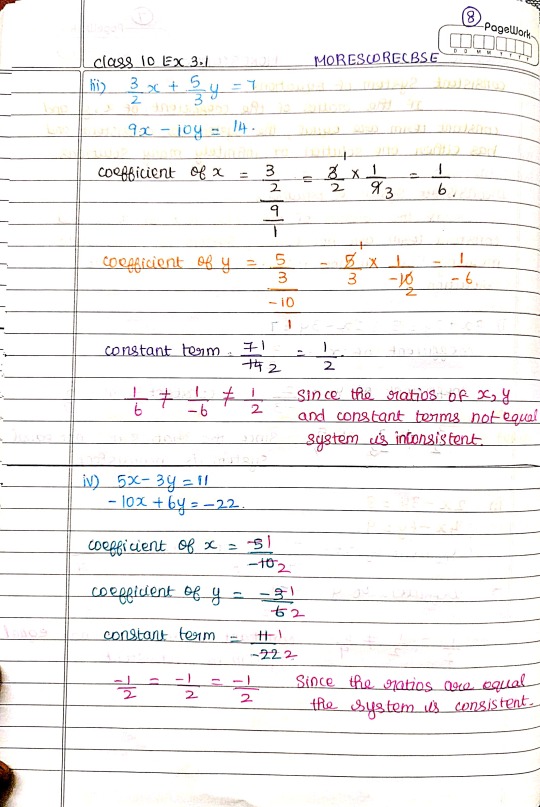 8
PageWork
D D M M Y Y Y
class 10 Ex 3.1 MORESCORECBSE
iii) 3/2 x + 5/3 y = 7
9x - 10y = 14.
coefficient of x = 3/2 / 9/1 = 3/2 1 × 1/9 3 = 1/6.
coefficient of y = 5/3 / -10/1 = 5/3 1 × 1/-10 2 = 1/-6
constant term = 7 1/14 2 = 1/2.
1/6 ≠ 1/-6 ≠ 1/2 Since the ratios of x, y
and constant terms not equal
system is inconsistent.
iv) 5x - 3y = 11
-10x + 6y = -22.
coefficient of x = 5 1/-10 2
coefficient of y = -3 1/6 2
constant term = 11 1/-22 2
-1/2 = -1/2 = -1/2 Since the ratios are equal
the system is consistent.